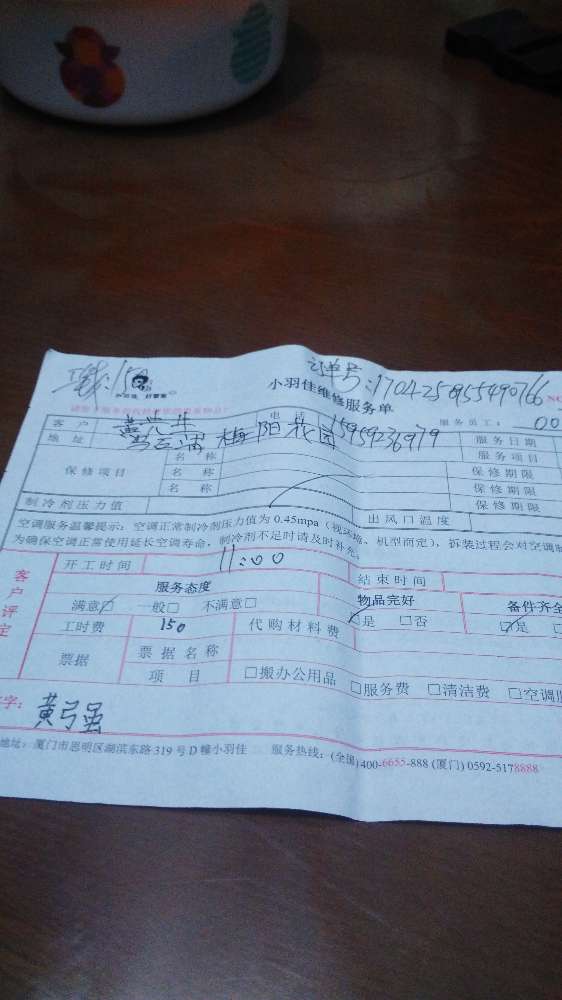 订单号:1704250955490766
小羽佳维修服务单
NO
服务员工: 00
客 户
电 话 15959236979
服务日期
地 址 梅阳花园
服务项目
保修项目
名 称
保修期限
名 称
保修期限
名 称
保修期限
制冷剂压力值
出风口温度
空调服务温馨提示:空调正常制冷剂压力值为 0.45mpa(视环境、机型而定),拆装过程会对空调制
为确保空调正常使用延长空调寿命,制冷剂不足时请及时补充。
客户评定
开工时间 11:00
结束时间
服务态度
物品完好
备件齐全
满意☑ 一般□ 不满意□
☑是 □否
☑是
工时费 150
代购材料费
票据
票 据 名 称
项 目
□搬办公用品 □服务费 □清洁费 □空调
字: 黄弓强
地址:厦门市思明区湖滨东路 319 号 D 幢小羽佳 服务热线:(全国)400-6655-888 (厦门) 0592-5178888